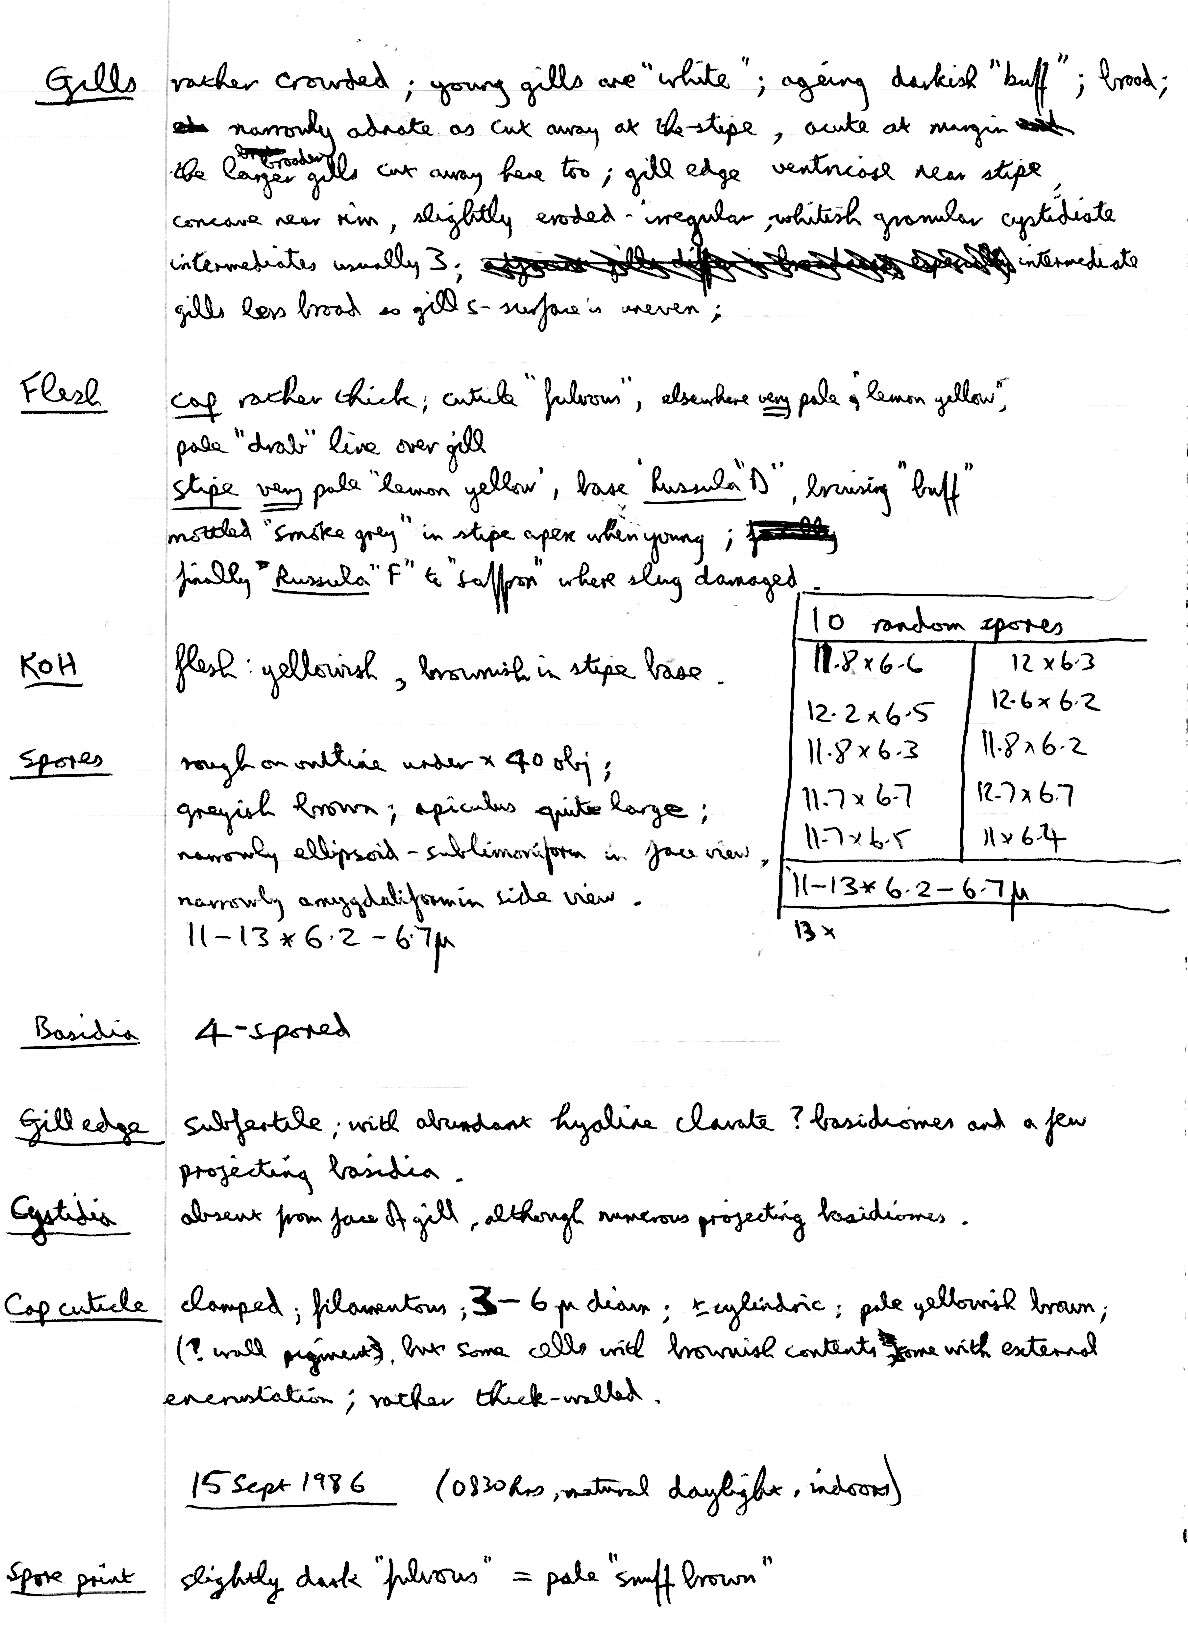 Gills rather crowded; young gills are "white"; ageing darkish "buff"; broad;
narrowly adnate as cut away at the stipe, acute at margin
broader
the larger gills cut away here too; gill edge ventricose near stipe,
concave near rim, slightly eroded-irregular, whitish granular cystidiate
intermediates usually 3; intermediate
gills less broad so gill s-surface is uneven;
Flesh cap rather thick; cuticle "fulvous", elsewhere very pale "lemon yellow",
pale "drab" line over gill
stipe very pale "lemon yellow", base "Russula "D", bruising "buff"
mottled "smoke grey" in stipe apex when young;
finally "Russula "F" to "saffron" where slug damaged.
10 random spores
KOH flesh: yellowish, brownish in stipe base.
11.8 x 6.6 12 x 6.3
12.2 x 6.5 12.6 x 6.2
11.8 x 6.3 11.8 x 6.2
11.7 x 6.7 12.7 x 6.7
11.7 x 6.5 11 x 6.4
11-13 x 6.2-6.7µ
13 x
Spores rough on outline under x 40 obj;
greyish brown; apiculus quite large;
narrowly ellipsoid-sublimoniform in face view,
narrowly amygdaliform in side view.
11-13 x 6.2-6.7µ
Basidia 4-spored
Gill edge subfertile; with abundant hyaline clavate ? basidiomes and a few
projecting basidia.
Cystidia absent from face of gill, although numerous projecting basidiomes.
Cap cuticle clamped; filamentous; 3-6 µ diam; ± cylindric; pale yellowish brown;
(? wall pigment), but some cells with brownish contents, some with external
encrustation; rather thick-walled.
15 Sept 1986 (0830hrs, natural daylight, indoors)
Spore print slightly dark "fulvous" = pale "snuff brown"